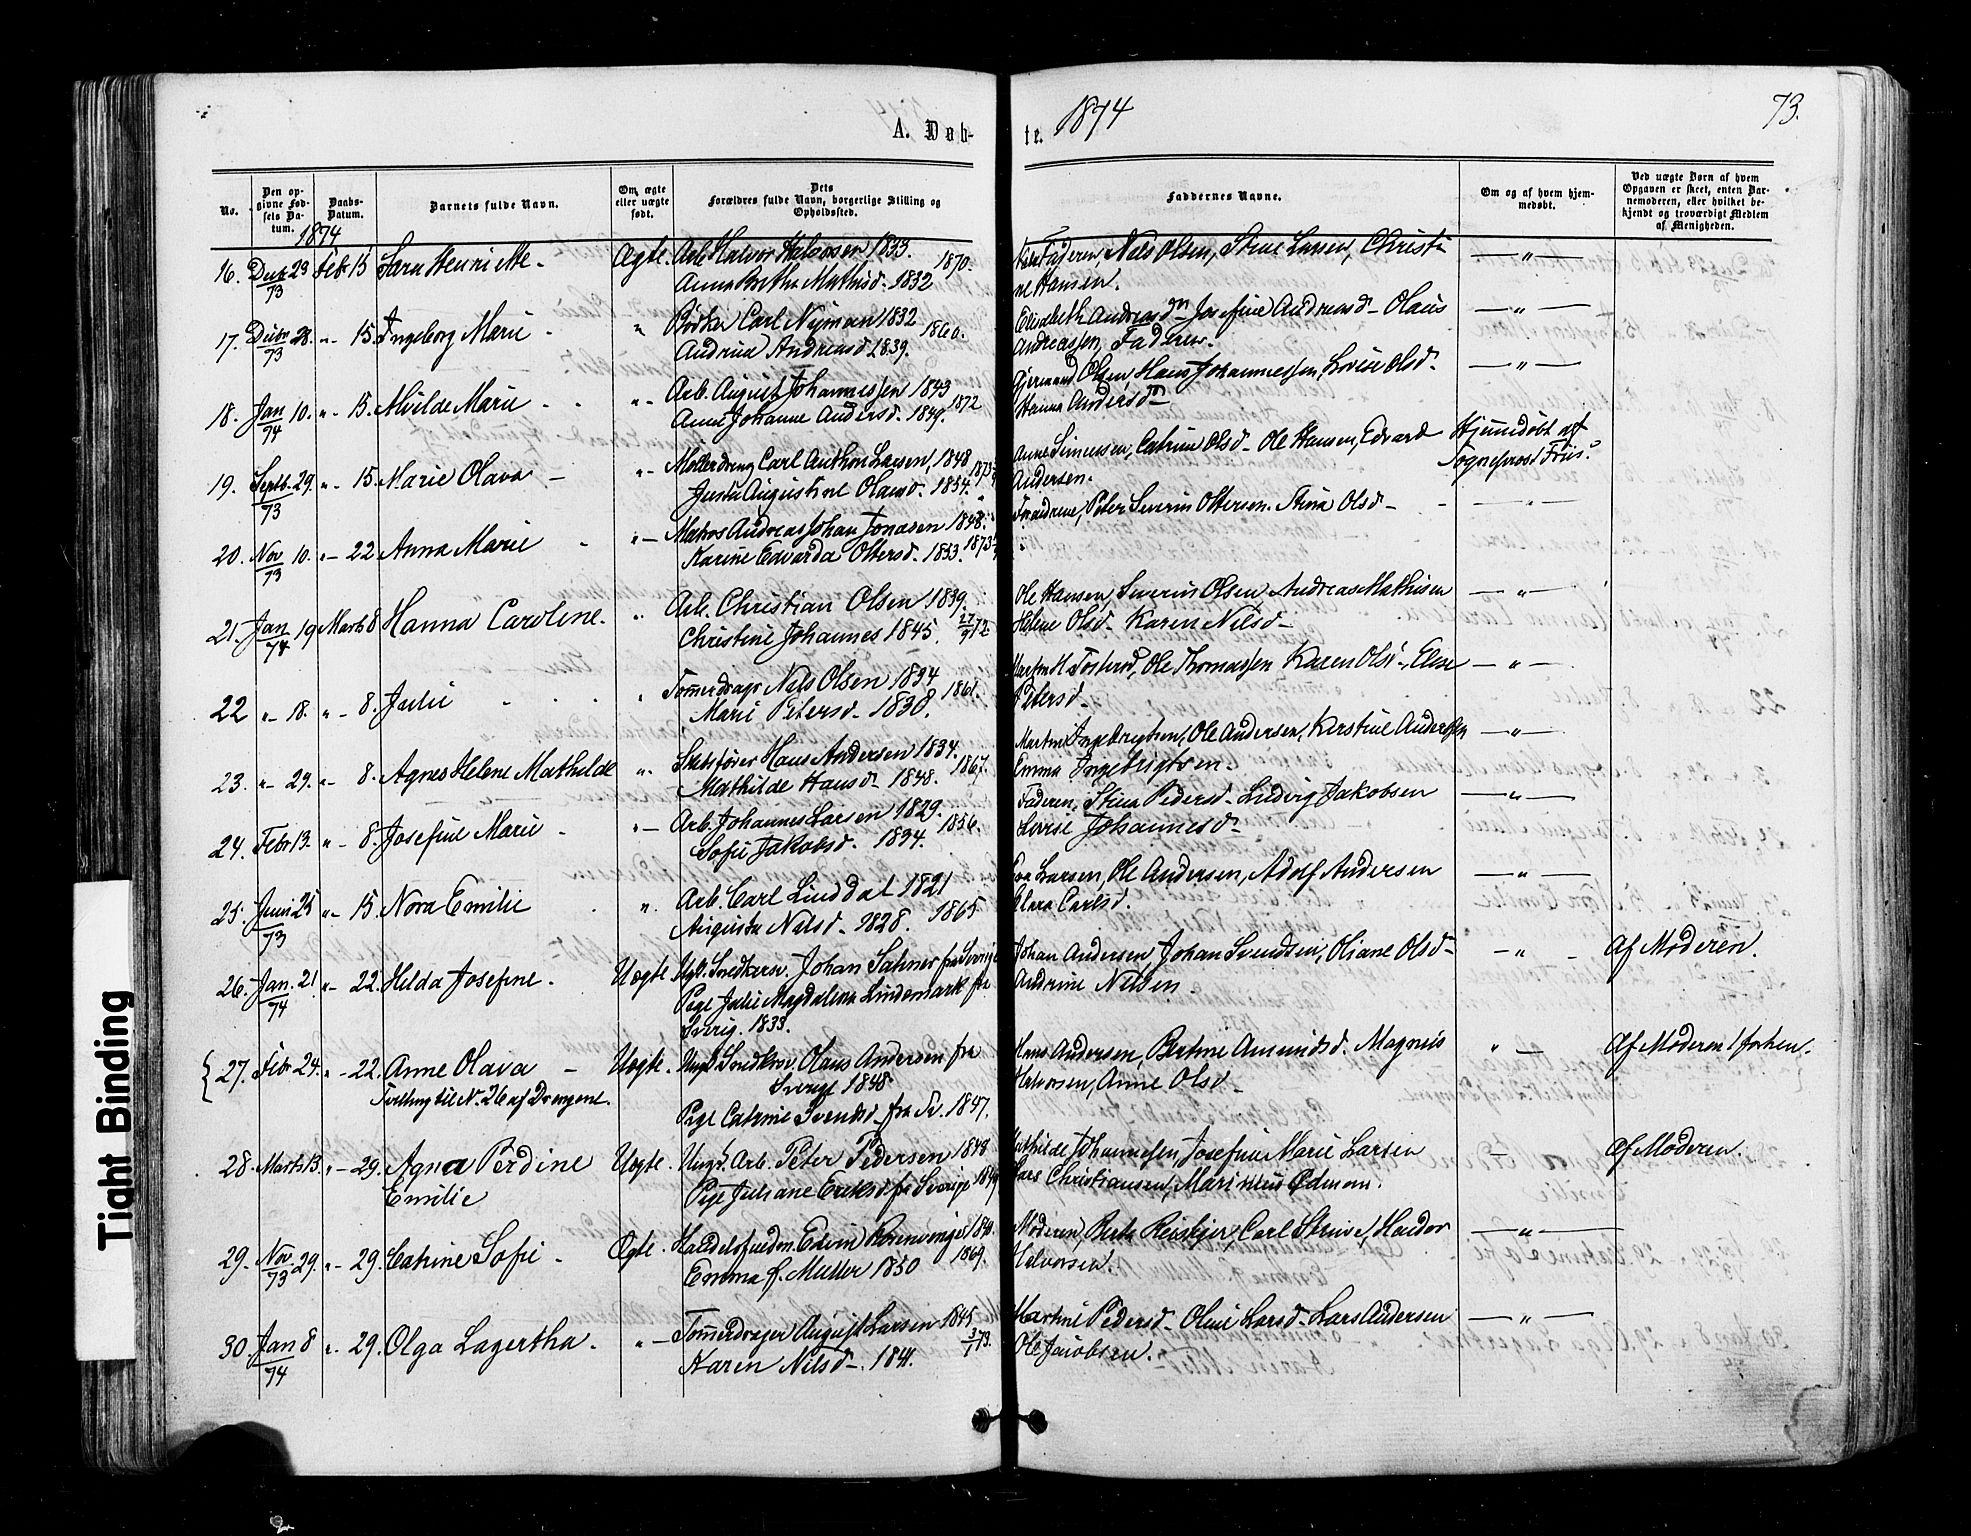 1874
73.
A. Døb-
te.
No.
Den op-
givne Fød-
sels Da-
tum.
Daabs-
Datum.
Barnets fulde Navn.
Om ægte
eller uægte
født.
Dets
Forældres fulde Navn, borgerlige Stilling og
Opholdssted.
Faddernes Navne.
Om og af hvem hjem-
medøbt.
Ved uægte Børn af hvem
Opgaven er skeet, enten Bar-
nemoderen, eller hvilket be-
kjendt og troværdigt Medlem
af Menigheden.
1874
16. 23/73 Febr 15 Sara Henriette. Ægte. Arb. Halvor Halvorsen 1833. 1870.
Anna Mathisd. 1832
Faderen, Nels Olsen, Stine Larsen, Christi
ne Hansen.
17. Decbr 28/73 " 15. Ingeborg Marie " Bødker Carl Nyman 1832 1860.
Andrea Andreasd. 1839.
Elisabeth Andreasd - Josefine Andreasd - Olaus
Andreassen, Faderen.
18. Jan 10/74 " 15. Alvilde Marie " Arb. August Johannessen 1843 1872
Anne Johanne Andersd. 1849.
Olsen, Hans Johannessen, Lovise Olsd.
Hanna Andersd
19. Septb. 29/73 " 15. Marie Olava " Møllerdreng Carl Anthon Larsen, 1848 1873
Augustine Olausd. 1854.
Anne Simensen, Catrine Olsd. Ole Hansen, Edvard
Andersen.
Hjemmedøbt af
Sogneprest Friis.
20. Nov 10/73 " 22 Anna Marie " Matros Andreas Johan Jonasen 1848. 1873
Karine Edvarda Ottersd. 1853.
Forældrene, Peter Severin Ottersen. Stina Olsd -
21. Jan 19/74 Marts 8 Hanna Caroline. " Arb. Christian Olsen 1839.
Christine Johannes 1845. 27/9 72
Ole Hansen, Severin Olsen Andreas Mathisen
Helene Olsd - Karen Nilsd -
22 " 18. " 8. Julie " Tømmerdrager Nils Olsen 1834 1861.
Marie Petersd - 1838.
Ole Thomassen Karen Olsd -, Else
Petersd -
23. " 29. " 8. Agnes Helene Mathilde " Hans Andersen 1834. 1867.
Mathilde Hansd - 1848.
Martin Ingebrigtsen, Ole Andersen, Kerstine Andersen
Emma Ingebrigtsen.
24. Febr 13. " 8 Josefine Marie " Arb. Johannes Larsen 1829. 1856.
Sofie Jakobsd. 1834.
Faderen, Stina Pedersd - Ludvig Jakobsen
Lovise Johannesd -
25. Juni 25/73 " 15. Nora Emilie " Arb. Carl Linddal 1821 1865
Augusta Nilsd - 1828.
Larsen, Ole Andersen, Adolf Andersen
Clara Carlsd.
26. Jan. 21/74 " 22. Hilda Josefine. Uægte. Johan fra Sverige
Pige Julie Magdalena Lindemark fra
Sverig. 1833.
Johan Andersen, Johan Svendsen, Oliane Olsd -
Andrine Nilsen
Af Moderen.
27. Febr 24. " 22. Anne Olava Uægte. Olaus Andersen fra
Sverige 1848
Pige Catrine Svendsd - fra Sv. 1847.
Tvilling til N. 26 af Drengene.
Hans Andersen, Bertine Amundsd. Magnus
Halvorsen, Anne Olsd -
Af Moderen
28. Marts 13. " 29. Agna Perdine Uægte. Ungk. Arb. Peter Pedersen 1848
Emilie Pige Juliane Eriksd fr Sverige
Mathilde Johannessen, Josefine Marie Larsen
Lars Christiansen, Marinius Ødman.
Af Moderen.
29. Nov 29/73 " 29. Catrine Sofie Ægte. Edvin Rosenvinge 1869.
Emma f. Muller 1850
Moderen, Carl Struve, Haldor
Halvorsen.
30. Jan 8/74 " 29. Olga Lagertha. " Tømmerdrager August Larsen 1845
Karen Nilsd -. 1841. 3/1 73.
Martine Pedersd - Oline Larsd - Lars Andersen
Ole Jacobsen.
Tight Binding